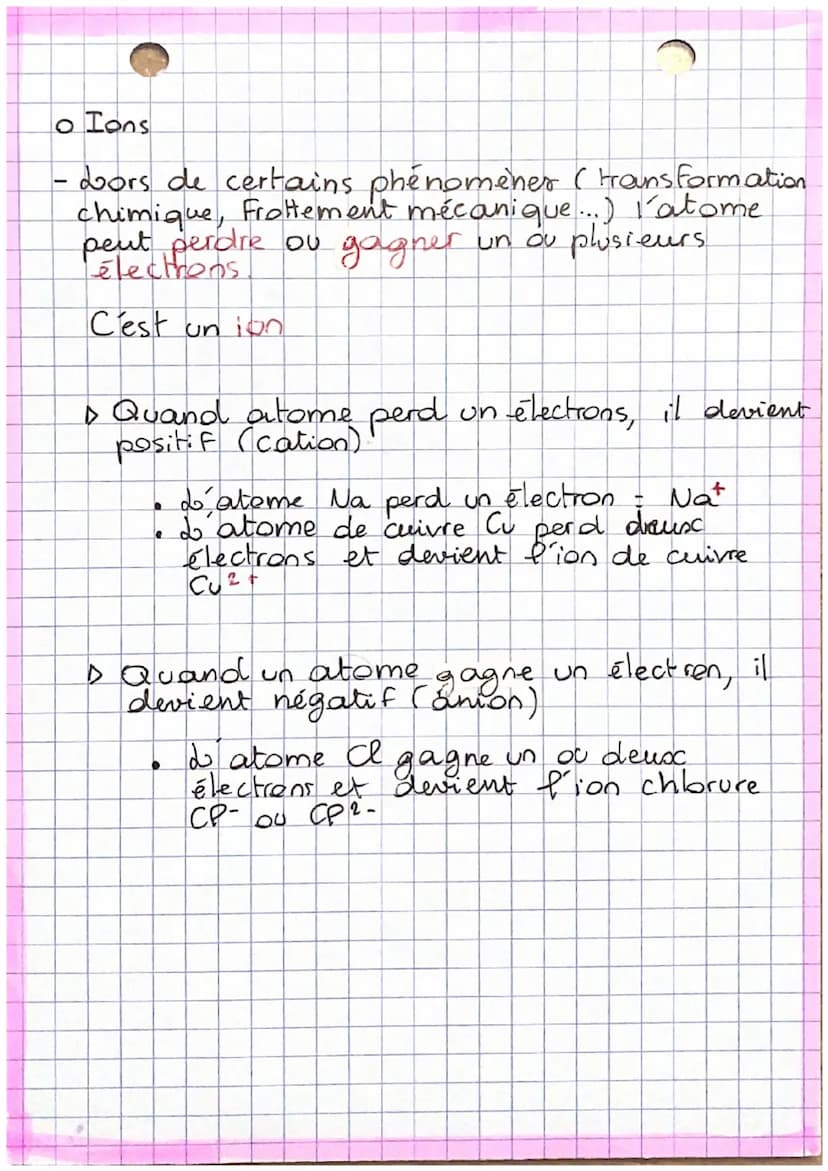 o Ions
- Lors de certains phénomènes (transformation
chimique, frottement mécanique...) l'atome
peut perdre ou gagner un ou plusieurs
électrons.
C'est un ion
▷ Quand atome perd un électrons, il devient
positif (cation)
• L'atome Na perd un électron = Na⁺
• L'atome de cuivre Cu perd deux
électrons et devient l'ion de cuivre
Cu²⁺
▷ Quand un atome gagne un électron, il
devient négatif (anion)
• L'atome Cl gagne un ou deux
électrons et devient l'ion chlorure
Cl- ou Cl²-